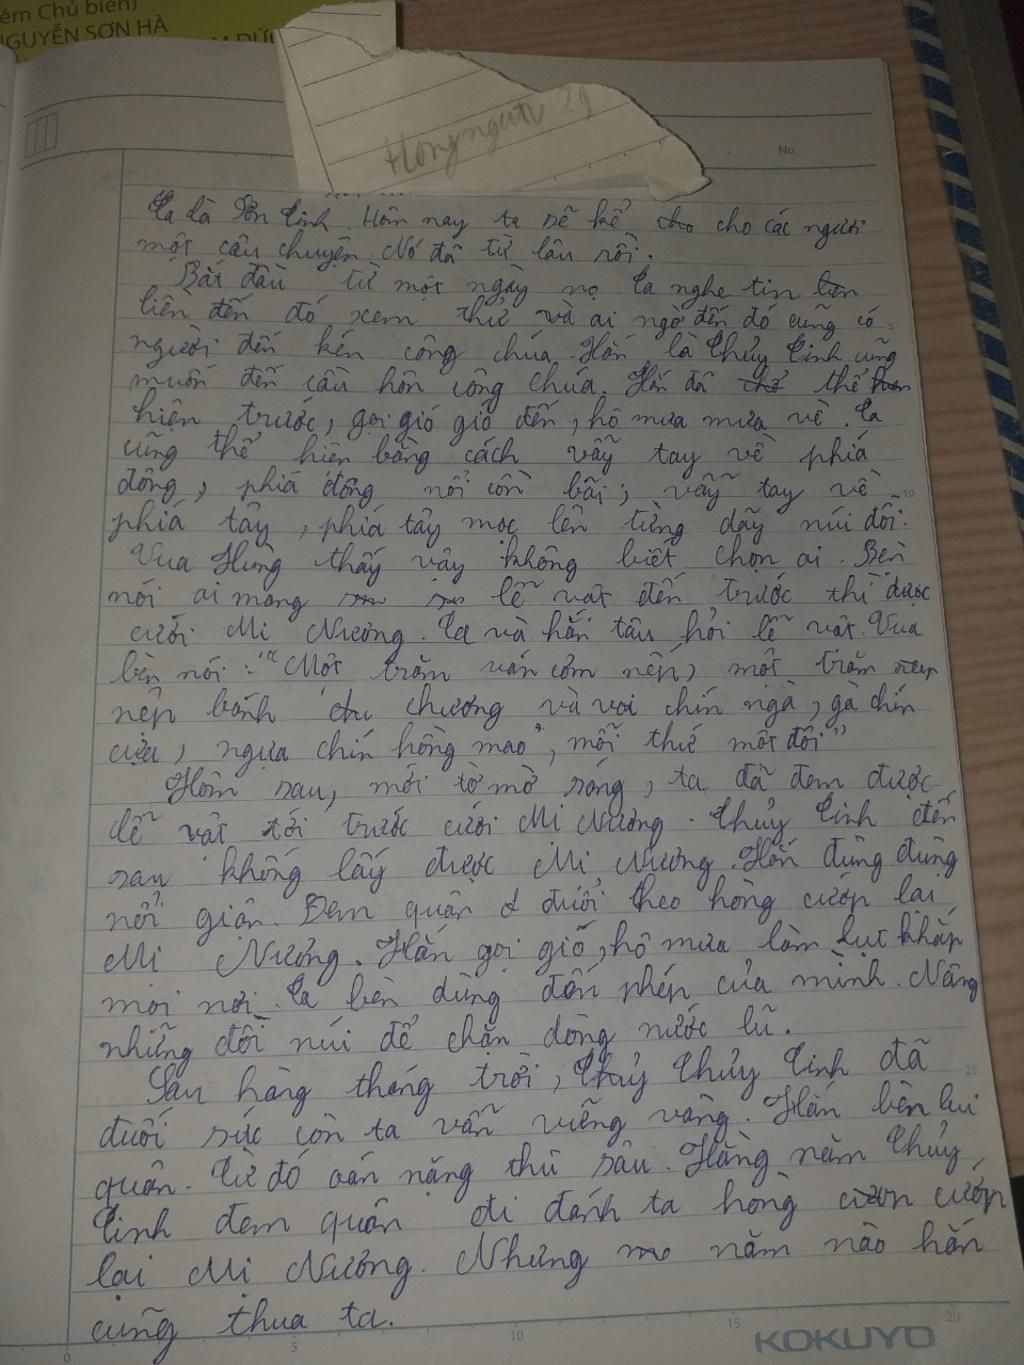 êm Chủ biên)
NGUYỄN SƠN HÀ
Hongngutv 29
No.
Ta là Sơn Tinh. Hôm nay ta sẽ kể cho cho các ngươi
một câu chuyện. Nó đã từ lâu rồi.
Bắt đầu từ một ngày nọ Ta nghe tin liền
liền đến đó xem thử và ai ngờ đến đó cũng có
người đến kén công chúa. Hắn là Thủy Tinh cũng
muốn đến cầu hôn công chúa. Hắn đã thể
hiện trước, gọi gió gió đến, hô mưa mưa về. Ta
cũng thể hiện bằng cách vẫy tay về phía
đông, phía đông nổi cồn bãi; vẫy tay về
phía tây, phía tây mọc lên từng dãy núi đồi.
Vua Hùng thấy vậy không biết chọn ai. Bèn
nói ai mang lễ vật đến trước thì được
cưới Mị Nương. Ta và hắn tâu hỏi lễ vật. Vua
bèn nói: "Một trăm ván cơm nếp, một trăm nẹp
nệp bánh chương và voi chín ngà, gà chín
cựa, ngựa chín hồng mao", mỗi thứ một đôi"
Hôm sau, mới tờ mờ sáng, ta đã đem được
lễ vật tới trước cưới Mị Nương. Thủy Tinh đến
sau không lấy được Mị Nương. Hắn đùng đùng
nổi giận. Đem quân đ đuổi theo hòng cướp lại
Mị Nương. Hắn gọi gió, hô mưa làm lụt khắp
mọi nơi. Ta bèn dùng đến phép của mình. Nâng
những đồi núi để chặn dòng nước lũ.
Sau hàng tháng trời, Thủy Thủy Tinh đã
đuối sức còn ta vẫn vững vàng. Hắn bèn lui
quân. Từ đó oán nặng thù sâu. Hằng năm Thủy
Tinh đem quân đi đánh ta hòng cướp
lại Mị Nương. Nhưng năm nào hắn
cũng thua ta.
0 5 10 15 20
10
25
KOKUYO